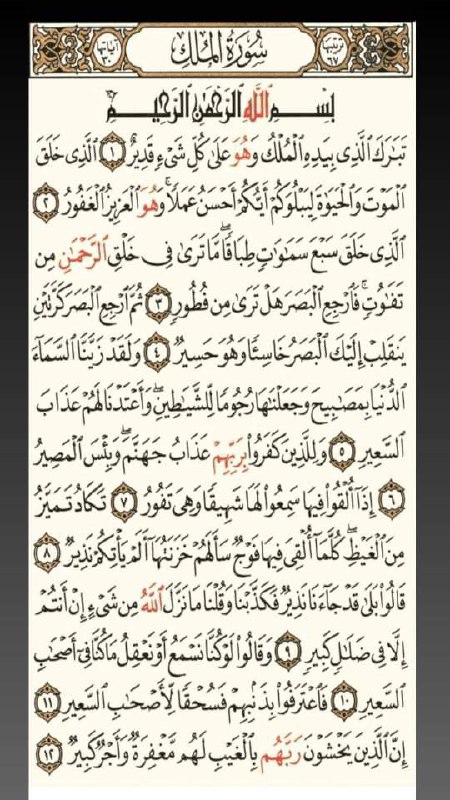 ترتيبها ٦٧ سُورَةُ الْمُلْكِ آياتها ٣٠
بِسْمِ اللَّهِ الرَّحْمَٰنِ الرَّحِيمِ
تَبَارَكَ الَّذِي بِيَدِهِ الْمُلْكُ وَهُوَ عَلَىٰ كُلِّ شَيْءٍ قَدِيرٌ ١ الَّذِي خَلَقَ
الْمَوْتَ وَالْحَيَوٰةَ لِيَبْلُوَكُمْ أَيُّكُمْ أَحْسَنُ عَمَلًا ۚ وَهُوَ الْعَزِيزُ الْغَفُورُ ٢
الَّذِي خَلَقَ سَبْعَ سَمَٰوَٰتٍ طِبَاقًا ۖ مَّا تَرَىٰ فِي خَلْقِ الرَّحْمَٰنِ مِن
تَفَٰوُتٍ ۖ فَارْجِعِ الْبَصَرَ هَلْ تَرَىٰ مِن فُطُورٍ ٣ ثُمَّ ارْجِعِ الْبَصَرَ كَرَّتَيْنِ
يَنقَلِبْ إِلَيْكَ الْبَصَرُ خَاسِئًا وَهُوَ حَسِيرٌ ٤ وَلَقَدْ زَيَّنَّا السَّمَاءَ
الدُّنْيَا بِمَصَٰبِيحَ وَجَعَلْنَٰهَا رُجُومًا لِّلشَّيَٰطِينِ ۖ وَأَعْتَدْنَا لَهُمْ عَذَابَ
السَّعِيرِ ٥ وَلِلَّذِينَ كَفَرُوا بِرَبِّهِمْ عَذَابُ جَهَنَّمَ ۖ وَبِئْسَ الْمَصِيرُ
٦ إِذَا أُلْقُوا فِيهَا سَمِعُوا لَهَا شَهِيقًا وَهِيَ تَفُورُ ٧ تَكَادُ تَمَيَّزُ
مِنَ الْغَيْظِ ۖ كُلَّمَا أُلْقِيَ فِيهَا فَوْجٌ سَأَلَهُمْ خَزَنَتُهَا أَلَمْ يَأْتِكُمْ نَذِيرٌ ٨
قَالُوا بَلَىٰ قَدْ جَاءَنَا نَذِيرٌ فَكَذَّبْنَا وَقُلْنَا مَا نَزَّلَ اللَّهُ مِن شَيْءٍ إِنْ أَنتُمْ
إِلَّا فِي ضَلَٰلٍ كَبِيرٍ ٩ وَقَالُوا لَوْ كُنَّا نَسْمَعُ أَوْ نَعْقِلُ مَا كُنَّا فِي أَصْحَٰبِ
السَّعِيرِ ١٠ فَاعْتَرَفُوا بِذَنبِهِمْ فَسُحْقًا لِّأَصْحَٰبِ السَّعِيرِ ١١
إِنَّ الَّذِينَ يَخْشَوْنَ رَبَّهُم بِالْغَيْبِ لَهُم مَّغْفِرَةٌ وَأَجْرٌ كَبِيرٌ ١٢